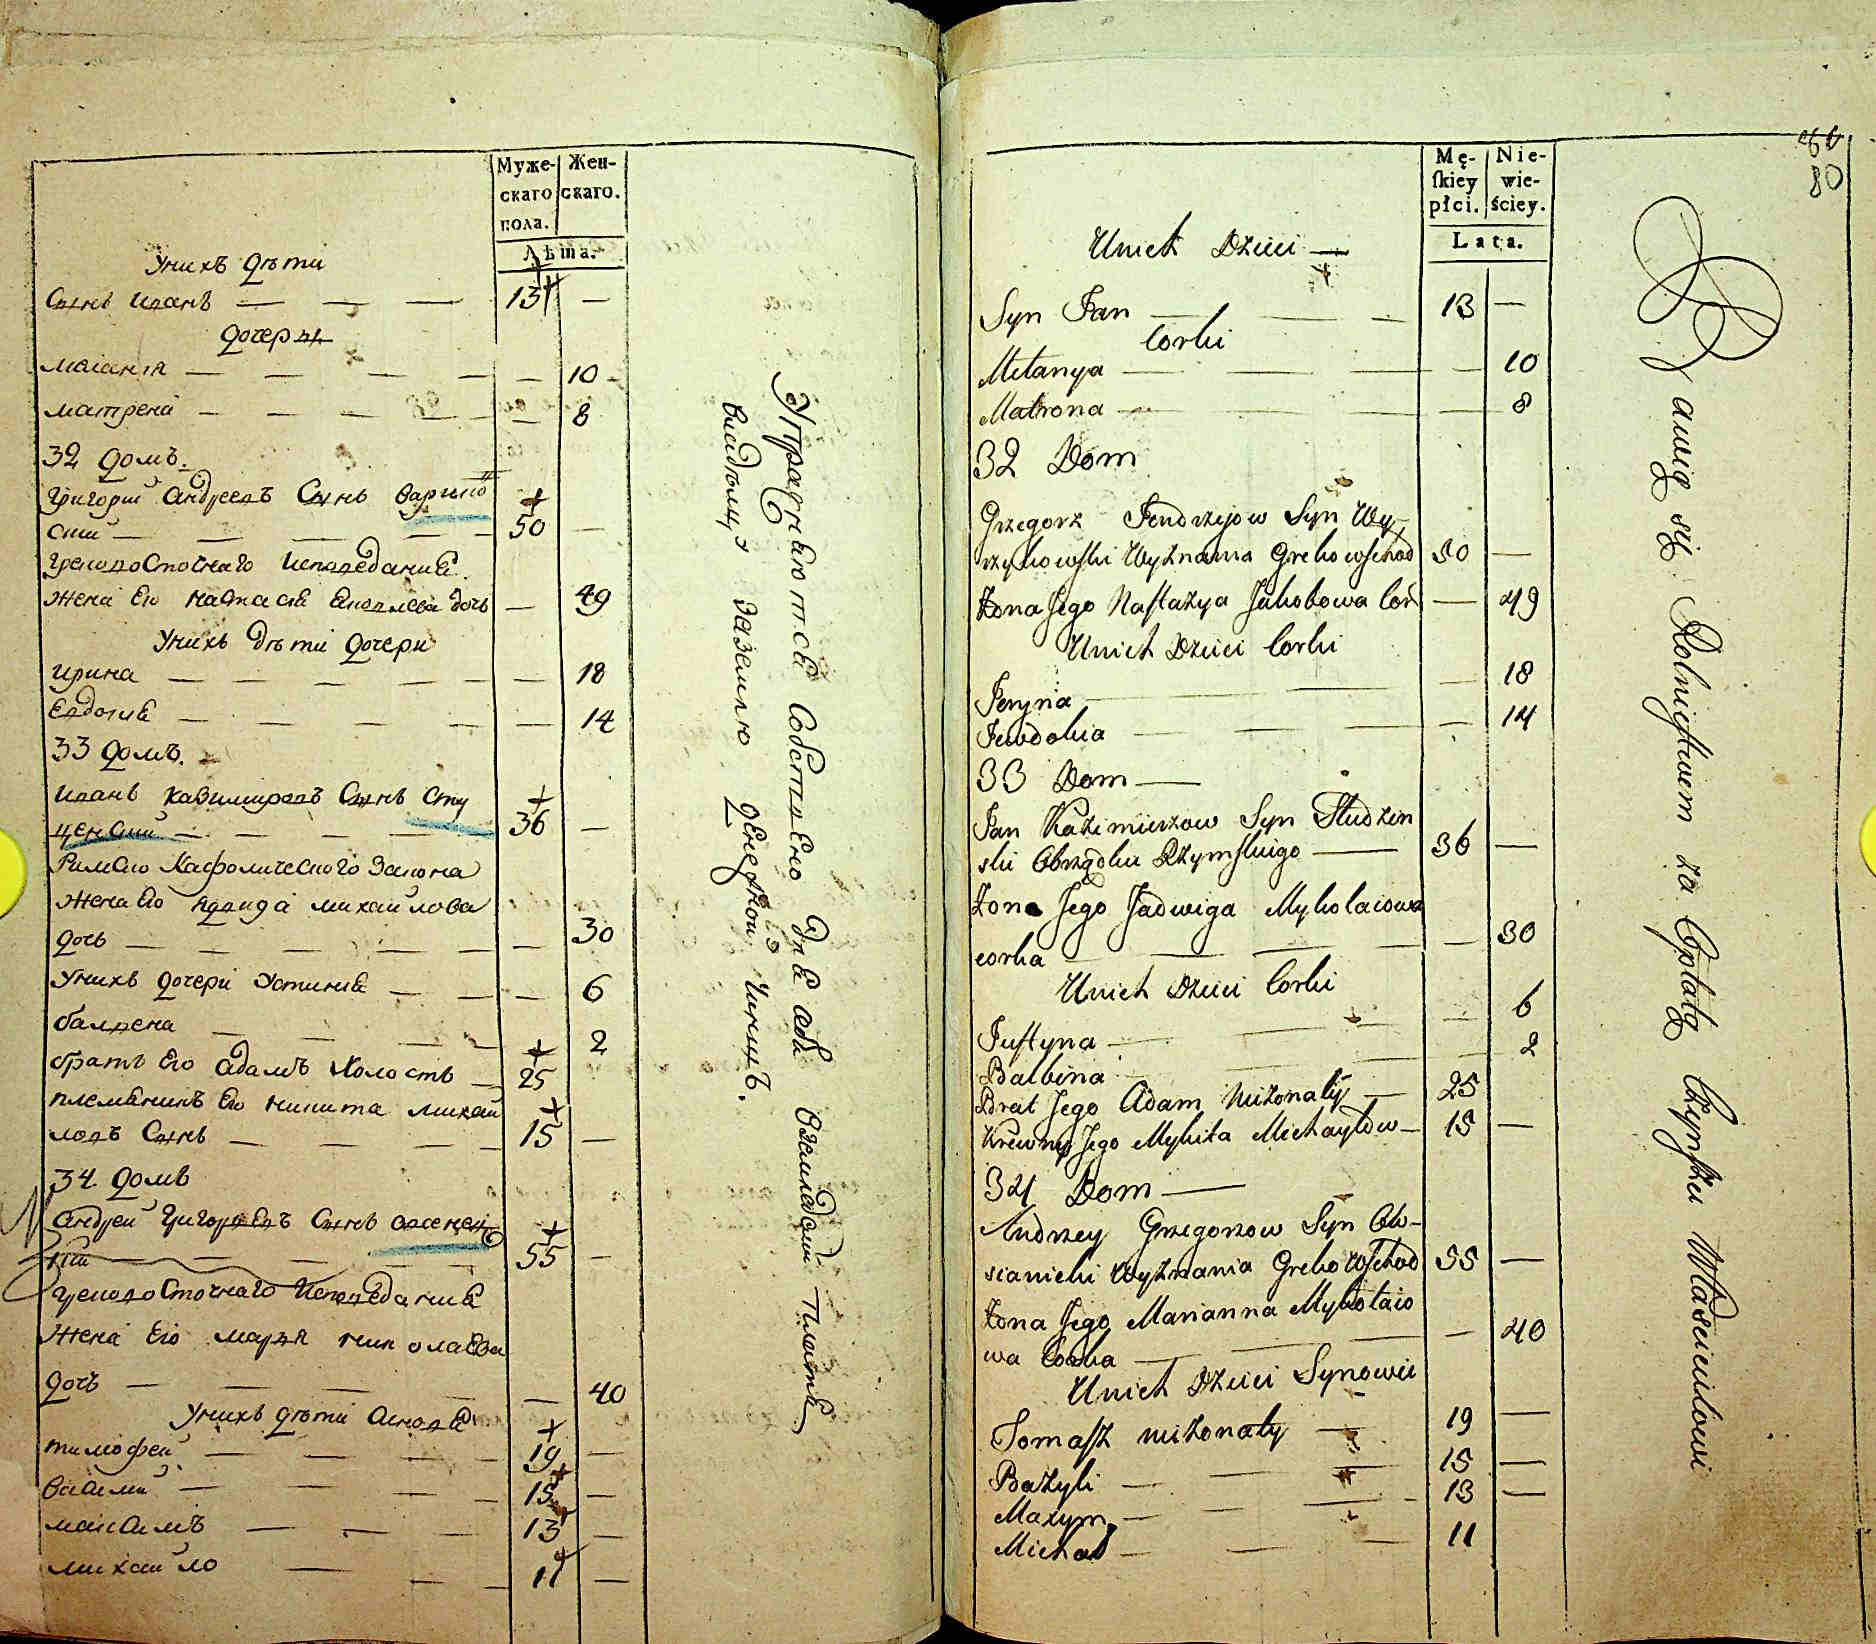 Муже-
скаго
пола.
Жен-
скаго.
Лѣта.
Унихъ дѣти
Сынъ Иванъ — — — 13 —
дочери
маланія — — — — — 10
матрена — — — — — 8
32 домъ.
григорий андреевъ Сынъ
ский — — — — 50 —
грековосточнаго исповедания
жена его настасія яковлева дочь — 49
Унихъ дѣти дочери
ирина — — — — — 18
евдокия — — — — — 14
33 домъ.
иванъ казимировъ Сынъ сту
ценский — — — — 36 —
Римско Кафолическаго закона
жена его ядвига михайлова
дочь — — — — — 30
Унихъ дочери устиния — — — 6
балвена — — — — 2
братъ его адамъ холостъ — 25
племянникъ его никита михай
ловъ Сынъ — — — 15 —
34 домъ
андрей григорьевъ Сынъ овсянец
кий — — — 55 —
грековосточнаго исповедания
жена его марья николаева
дочь — — — — — 40
Унихъ дѣти
тимофей — — — — 19 —
василий — — — — 15 —
максимъ — — — 13 —
михайло — — — 11 —
Упражняются
владѣлцу за землю денежной чиншъ.
80
Mę-
ſkiey
płci.
Nie-
wie-
ściey.
Lata.
Unich Dzieci —
Syn Jan — — — 13 —
Corki
Melanya — — — — 10
Matrona — — — — 8
32 Dom
Grzegorz Jendrzejow Syn Wy-
rzykowski Wyznania Greko wschod 50 —
Żona Jego Nastazya Jakobowa Cor — 49
Unich Dzieci Corki
Jeryna — — — — 18
Jewdokia — — — — 14
33 Dom —
Jan Kazimierzow Syn Studzin
ski Obrządku Rzymskiego — 36 —
Żona Jego Jadwiga Mykolaiowa
corka — — — — 30
Unich Dzieci Corki
Justyna — — — — 6
Balbina — — — 2
Brat Jego Adam nieżonaty — 25
Krewny Jego Mykita Michayłow — 15 —
34 Dom —
Andrzey Grzegorzow Syn Ow-
sianicki Wyznania Greko Wschod 55 —
Żona Jego Marianna Mykołaio
wa Corka — — — 40
Unich Dzieci Synowie
Tomasz nieżonaty — 19 —
Bazyli — — — 15 —
Maxym — — — 13 —
Michał — — — 11
Bawią się Rolnictwem za Opłatą Czynszu Właścicielowi